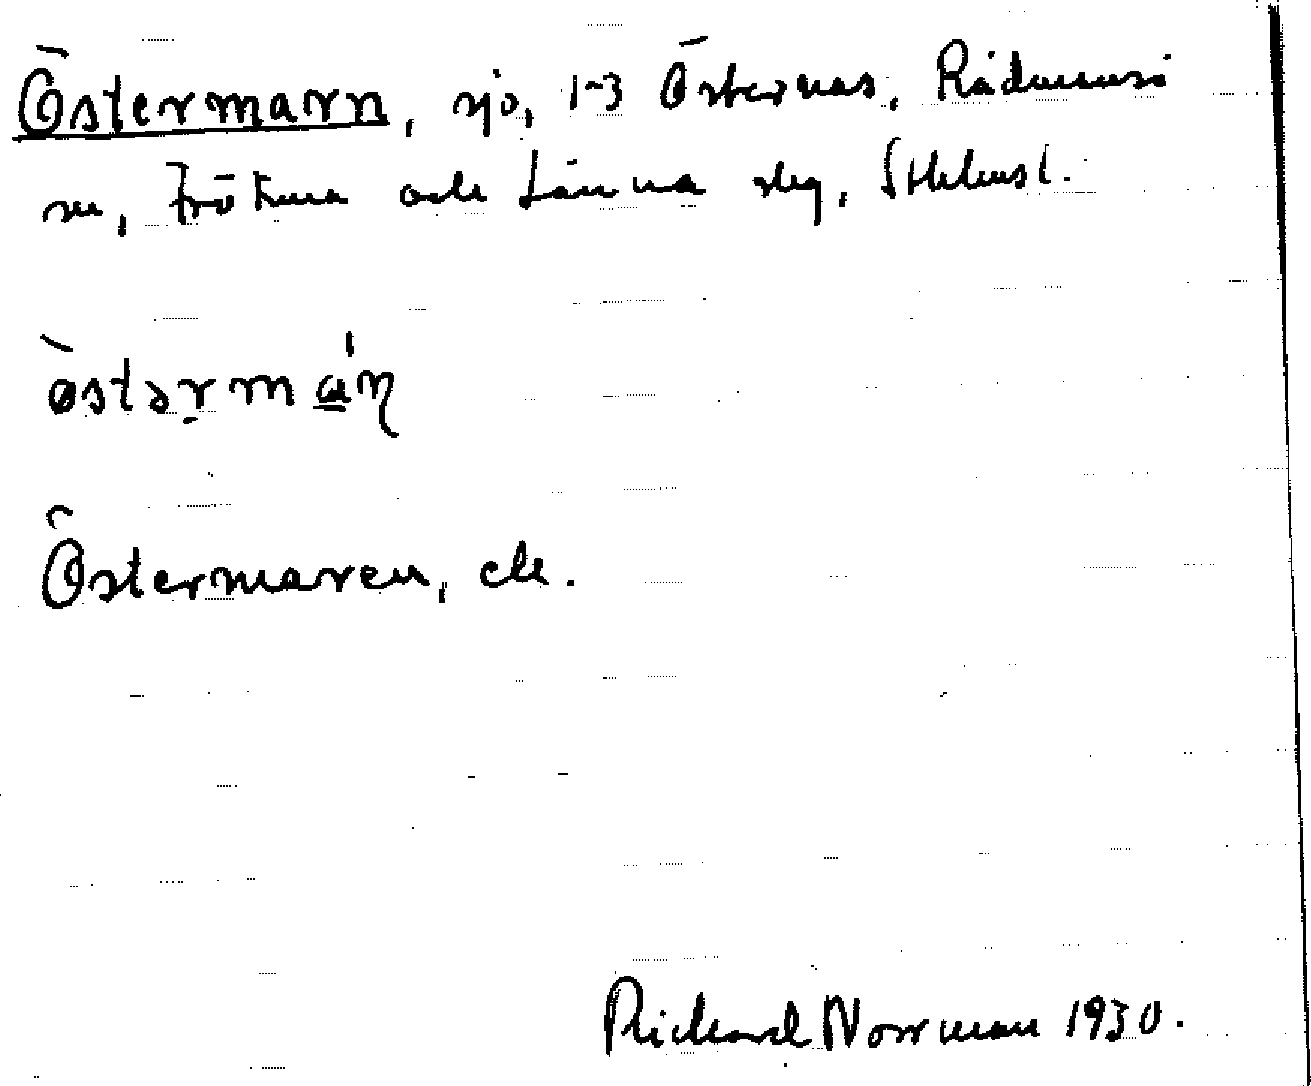 Östermarn, sjö, 1-3 Östernäs, Rådmansö
sn, Frötuna och Länna slg, Sthlms l.
östərmá̱ɳ
Östermaren, ek.
Richard Norrman 1930.